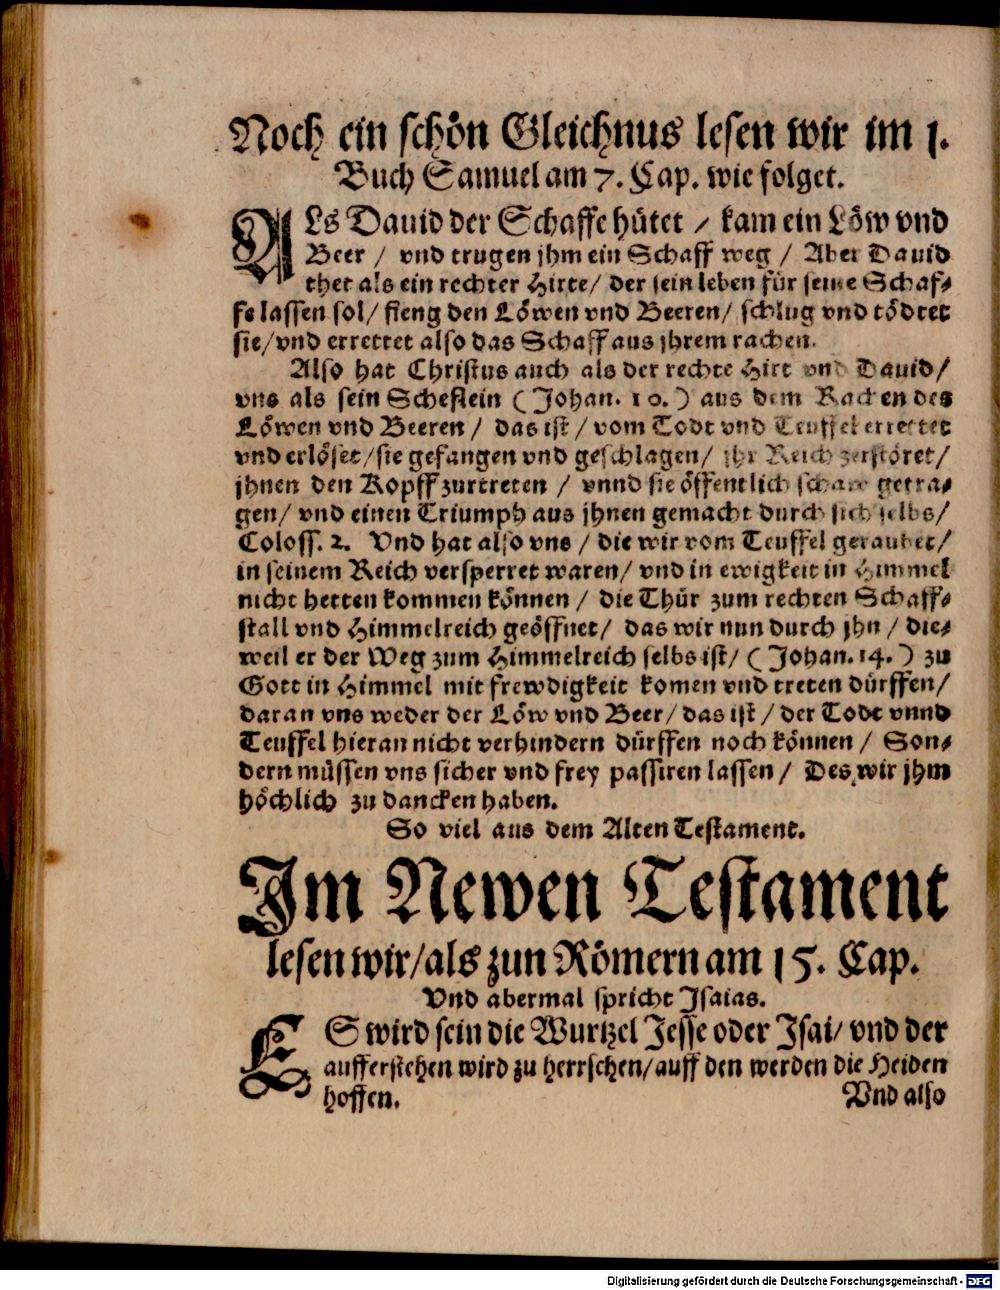 Noch ein schön Gleichnus lesen wir im 1.
Buch Samuel am 7. Cap. wie folget.
ALs Dauid der Schaffe hütet / kam ein Löw vnd
Beer / vnd trugen jhm ein Schaff weg / Aber Dauid
thet als ein rechter Hirte / der sein leben für seine Schaf-
fe lassen sol / fieng den Löwen vnd Beeren / schlug vnd tödtet
sie / vnd errettet also das Schaff aus jhrem rachen.
Also hat Christus auch als der rechte Hirt vnd Dauid /
vns als sein Scheflein ( Johan. 10. ) aus dem Rachen des
Löwen vnd Beeren / das ist / vom Todt vnd Teuffel errettet
vnd erlöset / sie gefangen vnd geschlagen / jhr Reich zerstöret /
jhnen den Kopff zurtreten / vnnd sie öffentlich schaw getra-
gen / vnd einen Triumph aus jhnen gemacht durch sich selbs /
Coloss. 2. Vnd hat also vns / die wir vom Teuffel geraubet /
in seinem Reich versperret waren / vnd in ewigkeit in Himmel
nicht hetten kommen können / die Thür zum rechten Schaff-
stall vnd Himmelreich geöffnet / das wir nun durch jhn / die-
weil er der Weg zum Himmelreich selbs ist / ( Johan. 14. ) zu
Gott in Himmel mit frewdigkeit komen vnd treten dürffen /
daran vns weder der Löw vnd Beer / das ist / der Todt vnnd
Teuffel hieran nicht verhindern dürffen noch können / Son-
dern müssen vns sicher vnd frey passiren lassen / Des wir jhm
höchlich zu dancken haben.
So viel aus dem Alten Testament.
Im Newen Testament
lesen wir / als zun Römern am 15. Cap.
Vnd abermal spricht Isaias.
ES wird sein die Wurtzel Jesse oder Isai / vnd der
aufferstehen wird zu herrschen / auff den werden die Heiden
hoffen. Vnd also
Digitalisierung gefördert durch die Deutsche Forschungsgemeinschaft - DFG